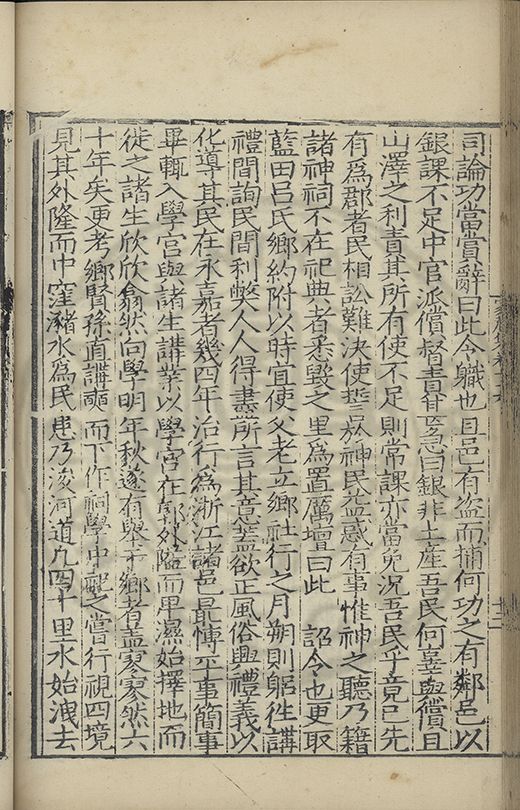 司論功當賞辭曰此令職也且邑有盗而捕何功之有鄰邑以
銀課不足中官派償督責甚急曰銀非土産吾民何辜與償且
山澤之利責其所有使不足則常課亦當免況吾民乎竟已先
有為郡者民相訟難決使誓於神民益惑有事惟神之聽乃籍
諸神祠不在祀典者悉毀之里為置厲壇曰此　詔令也更取
藍田呂氏鄉約附以時宜使父老立鄉社行之月朔則躬徃講
禮間詢民間利弊人人得盡所言其意蓋欲正風俗興禮義以
化導其民在永嘉者幾四年治行為浙江諸邑最愽平事簡事
畢輒入學宮與諸生講業以學宮在郭外隘而卑濕始擇地而
徙之諸生欣欣翕然向學明年秋遂有舉于鄉者盖寥寥然六
十年矣更考鄉賢孫直講奭而下作祠學中祀之嘗行視四境
見其外隆而中窪瀦水為民患乃浚河道九四十里水始洩去